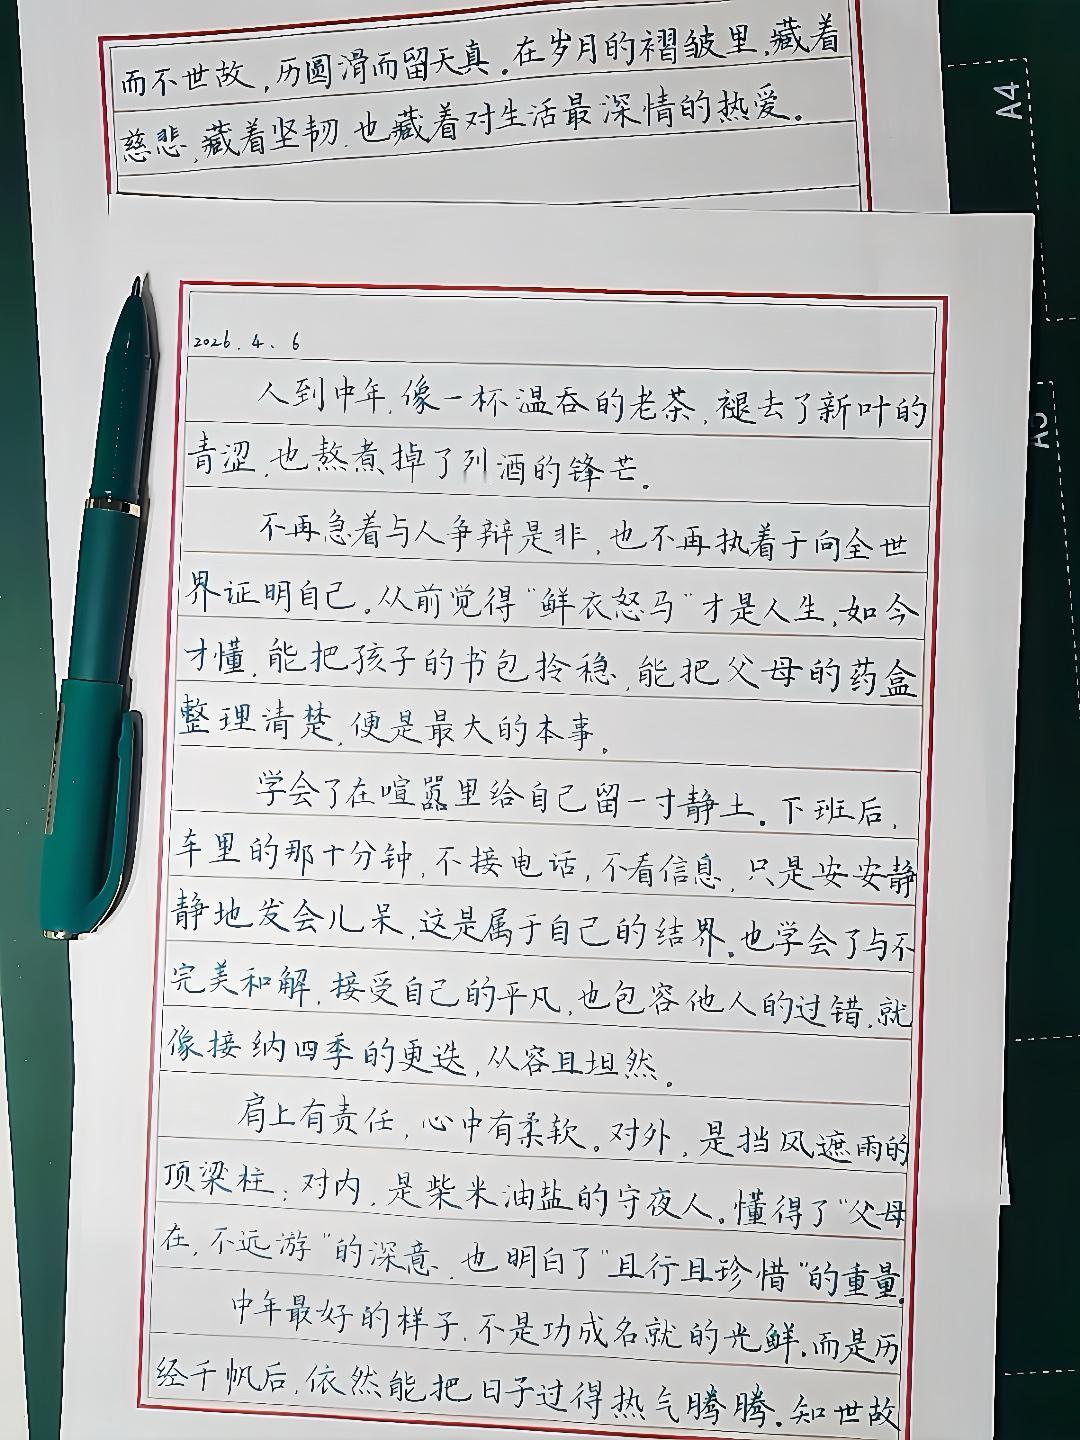 而不世故，历圆滑而留天真。在岁月的褶皱里，藏着
慈悲，藏着坚韧，也藏着对生活最深情的热爱。
A4
A5
2026.4.6
人到中年，像一杯温吞的老茶，褪去了新叶的
青涩，也熬煮掉了列酒的锋芒。
不再急着与人争辩是非，也不再执着于向全世
界证明自己。从前觉得“鲜衣怒马”才是人生，如今
才懂，能把孩子的书包拎稳，能把父母的药盒
整理清楚，便是最大的本事。
学会了在喧嚣里给自己留一寸静土。下班后，
车里的那十分钟，不接电话，不看信息，只是安安静
静地发会儿呆，这是属于自己的结界。也学会了与不
完美和解，接受自己的平凡，也包容他人的过错，就
像接纳四季的更迭，从容且坦然。
肩上有责任，心中有柔软。对外，是挡风遮雨的
顶梁柱；对内，是柴米油盐的守夜人。懂得了“父母
在，不远游”的深意，也明白了“且行且珍惜”的重量。
中年最好的样子，不是功成名就的光鲜，而是历
经千帆后，依然能把日子过得热气腾腾。知世故